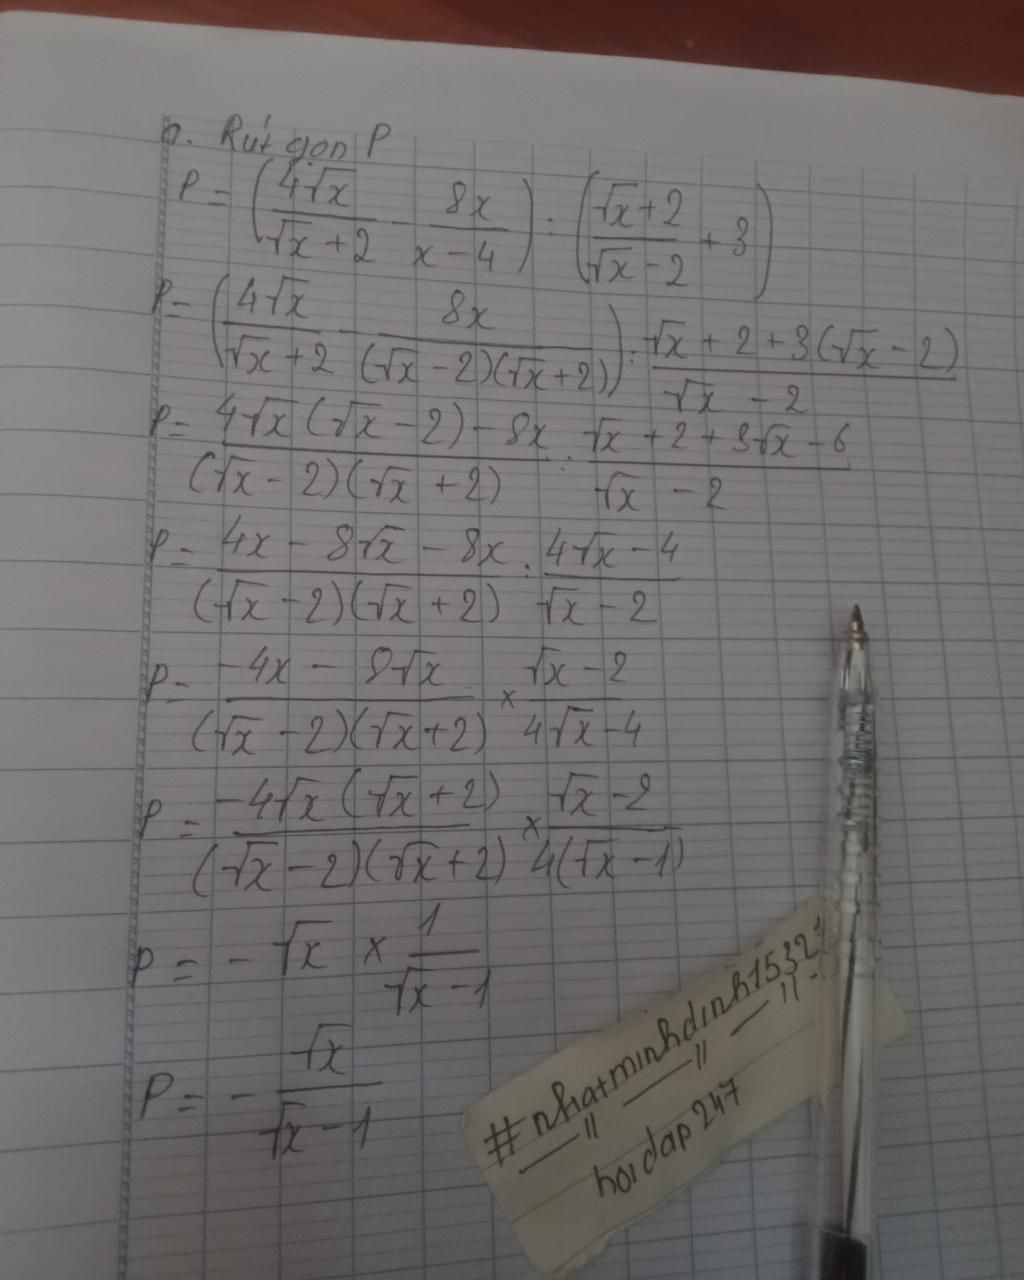 a. Rút gọn P
P = (4√x/(√x + 2) - 8x/(x - 4)) : ((√x + 2)/(√x - 2) + 3)
P = (4√x/(√x + 2) - 8x/((√x - 2)(√x + 2))) : (√x + 2 + 3(√x - 2))/(√x - 2)
P = (4√x(√x - 2) - 8x)/((√x - 2)(√x + 2)) : (√x + 2 + 3√x - 6)/(√x - 2)
P = (4x - 8√x - 8x)/((√x - 2)(√x + 2)) : (4√x - 4)/(√x - 2)
P = (-4x - 8√x)/((√x - 2)(√x + 2)) × (√x - 2)/(4√x - 4)
P = (-4√x(√x + 2))/((√x - 2)(√x + 2)) × (√x - 2)/(4(√x - 1))
P = - √x × 1/(√x - 1)
P = - √x/(√x - 1)
#nhatminhdinh1532
hoidap247